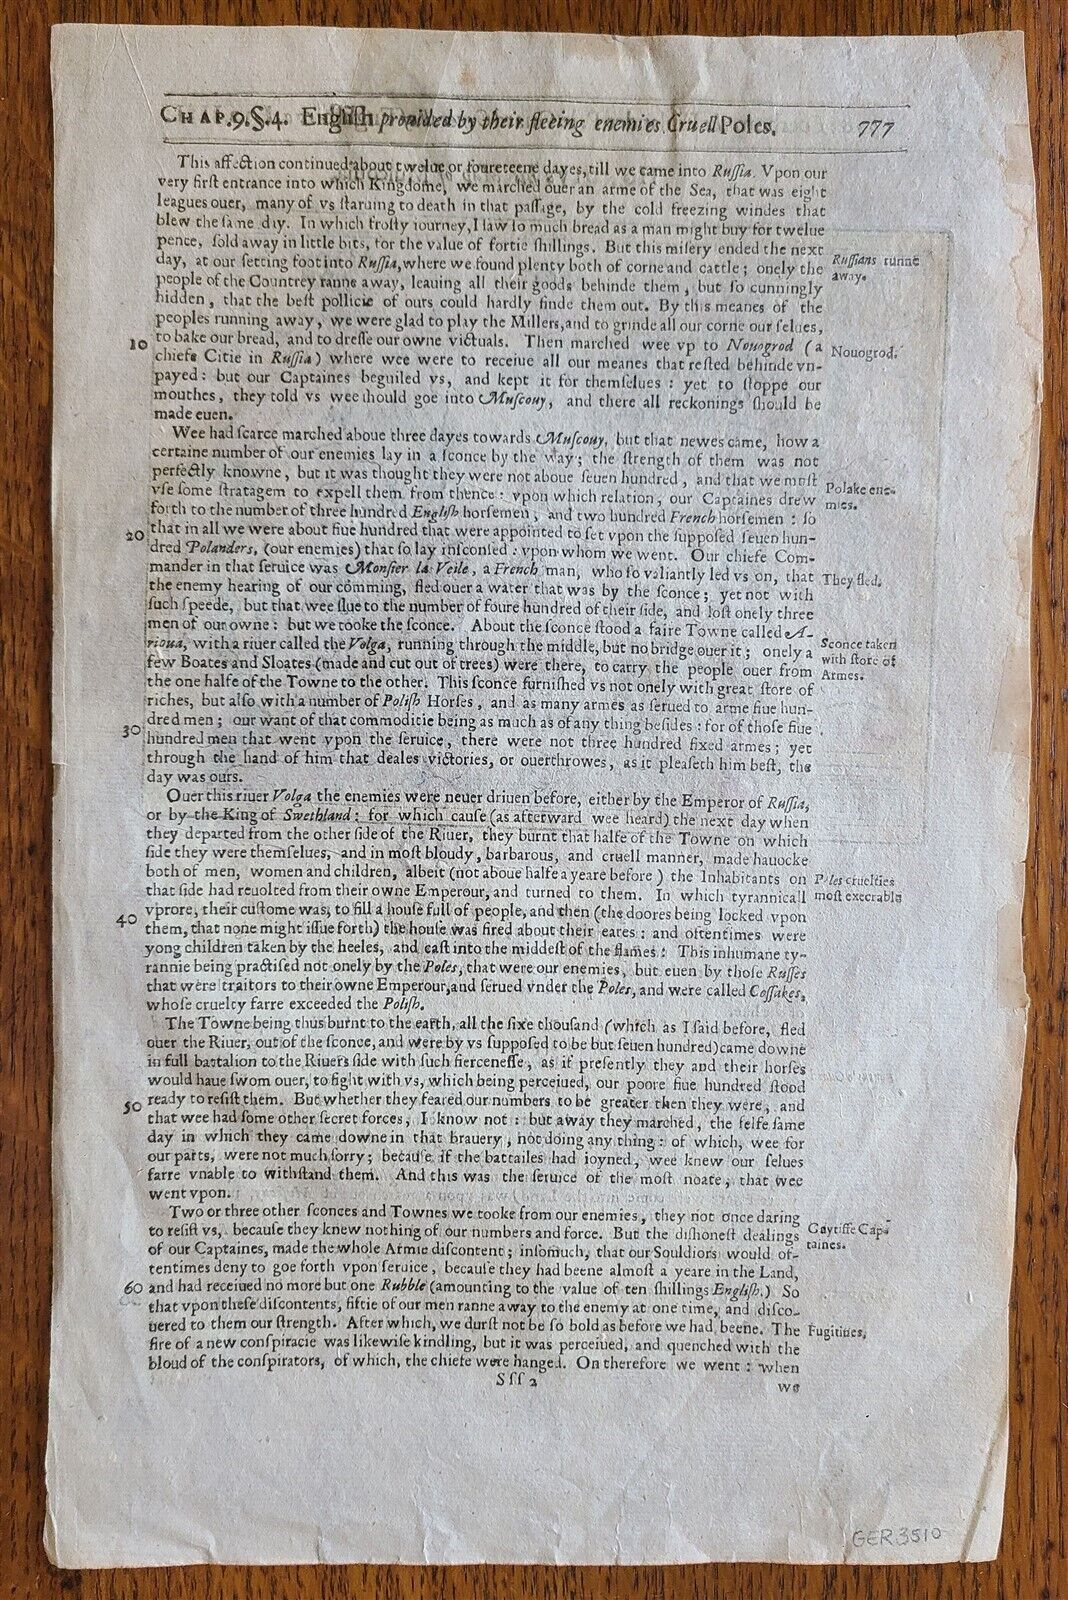 CHAP.9.§.4. English prouided by their fleeing enemies Cruell Poles. 777
This affection continued about twelue or foureteene dayes, till we came into Russia. Vpon our
very first entrance into which Kingdome, we marched ouer an arme of the Sea, that was eight
leagues ouer, many of vs staruing to death in that passage, by the cold freezing windes that
blew the same day. In which frosty iourney, I saw so much bread as a man might buy for twelue
pence, sold away in little bits, for the value of fortie shillings. But this misery ended the next
day, at our setting foot into Russia, where we found plenty both of corne and cattle; onely the
Russians runne
away.
people of the Countrey ranne away, leauing all their goods behinde them, but so cunningly
hidden, that the best pollicie of ours could hardly finde them out. By this meanes of the
peoples running away, we were glad to play the Millers, and to grinde all our corne our selues,
10 to bake our bread, and to dresse our owne victuals. Then marched wee vp to Nouogrod (a
Nouogrod.
chiefe Citie in Russia) where wee were to receiue all our meanes that rested behinde vn-
payed: but our Captaines beguiled vs, and kept it for themselues: yet to stoppe our
mouthes, they told vs wee should goe into Muscouy, and there all reckonings should be
made euen.
Wee had scarce marched aboue three dayes towards Muscouy, but that newes came, how a
certaine number of our enemies lay in a sconce by the way; the strength of them was not
perfectly knowne, but it was thought they were not aboue seuen hundred, and that we must
Polake ene-
mies.
vse some stratagem to expell them from thence: vpon which relation, our Captaines drew
forth to the number of three hundred English horsemen, and two hundred French horsemen: so
20 that in all we were about fiue hundred that were appointed to set vpon the supposed seuen hun-
dred Polanders, (our enemies) that so lay insconsed: vpon whom we went. Our chiefe Com-
mander in that seruice was Monsier la Veile, a French man, who so valiantly led vs on, that
They fled.
the enemy hearing of our comming, fled ouer a water that was by the sconce; yet not with
such speede, but that wee slue to the number of foure hundred of their side, and lost onely three
men of our owne: but we tooke the sconce. About the sconce stood a faire Towne called A-
rioua, with a riuer called the Volga, running through the middle, but no bridge ouer it; onely a
Sconce taken
with store of
Armes.
few Boates and Sloates (made and cut out of trees) were there, to carry the people ouer from
the one halfe of the Towne to the other. This sconce furnished vs not onely with great store of
riches, but also with a number of Polish Horses, and as many armes as serued to arme fiue hun-
dred men; our want of that commoditie being as much as of any thing besides: for of those fiue
30 hundred men that went vpon the seruice, there were not three hundred fixed armes; yet
through the hand of him that deales victories, or ouerthrowes, as it pleaseth him best, the
day was ours.
Ouer this riuer Volga the enemies were neuer driuen before, either by the Emperor of Russia,
or by the King of Swethland: for which cause (as afterward wee heard) the next day when
they departed from the other side of the Riuer, they burnt that halfe of the Towne on which
side they were themselues, and in most bloudy, barbarous, and cruell manner, made hauocke
both of men, women and children, albeit (not aboue halfe a yeare before) the Inhabitants on
Poles cruelties
most execrable
that side had reuolted from their owne Emperour, and turned to them. In which tyrannicall
40 vprore, their custome was, to fill a house full of people, and then (the doores being locked vpon
them, that none might issue forth) the house was fired about their eares: and oftentimes were
yong children taken by the heeles, and cast into the middest of the flames: This inhumane ty-
rannie being practised not onely by the Poles, that were our enemies, but euen by those Russes
that were traitors to their owne Emperour, and serued vnder the Poles, and were called Cossakes,
whose cruelty farre exceeded the Polish.
The Towne being thus burnt to the earth, all the sixe thousand (which as I said before, fled
ouer the Riuer, out of the sconce, and were by vs supposed to be but seuen hundred) came downe
in full battalion to the Riuers side with such fiercenesse, as if presently they and their horses
would haue swom ouer, to fight with vs, which being perceiued, our poore fiue hundred stood
50 ready to resist them. But whether they feared our numbers to be greater then they were, and
that wee had some other secret forces, I know not: but away they marched, the selfe same
day in which they came downe in that brauery, not doing any thing: of which, wee for
our parts, were not much sorry; because if the battailes had ioyned, wee knew our selues
farre vnable to withstand them. And this was the seruice of the most noate, that wee
went vpon.
Two or three other sconces and Townes we tooke from our enemies, they not once daring
Caytiffe Cap-
taines.
to resist vs, because they knew nothing of our numbers and force. But the dishonest dealings
of our Captaines, made the whole Armie discontent; insomuch, that our Souldiors would of-
tentimes deny to goe forth vpon seruice, because they had beene almost a yeare in the Land,
60 and had receiued no more but one Rubble (amounting to the value of ten shillings English.) So
that vpon these discontents, fiftie of our men ranne away to the enemy at one time, and disco-
uered to them our strength. After which, we durst not be so bold as before we had beene. The
Fugitiues,
fire of a new conspiracie was likewise kindling, but it was perceiued, and quenched with the
bloud of the conspirators, of which, the chiefe were hanged. On therefore we went: when
Sss 2
we
GER3510